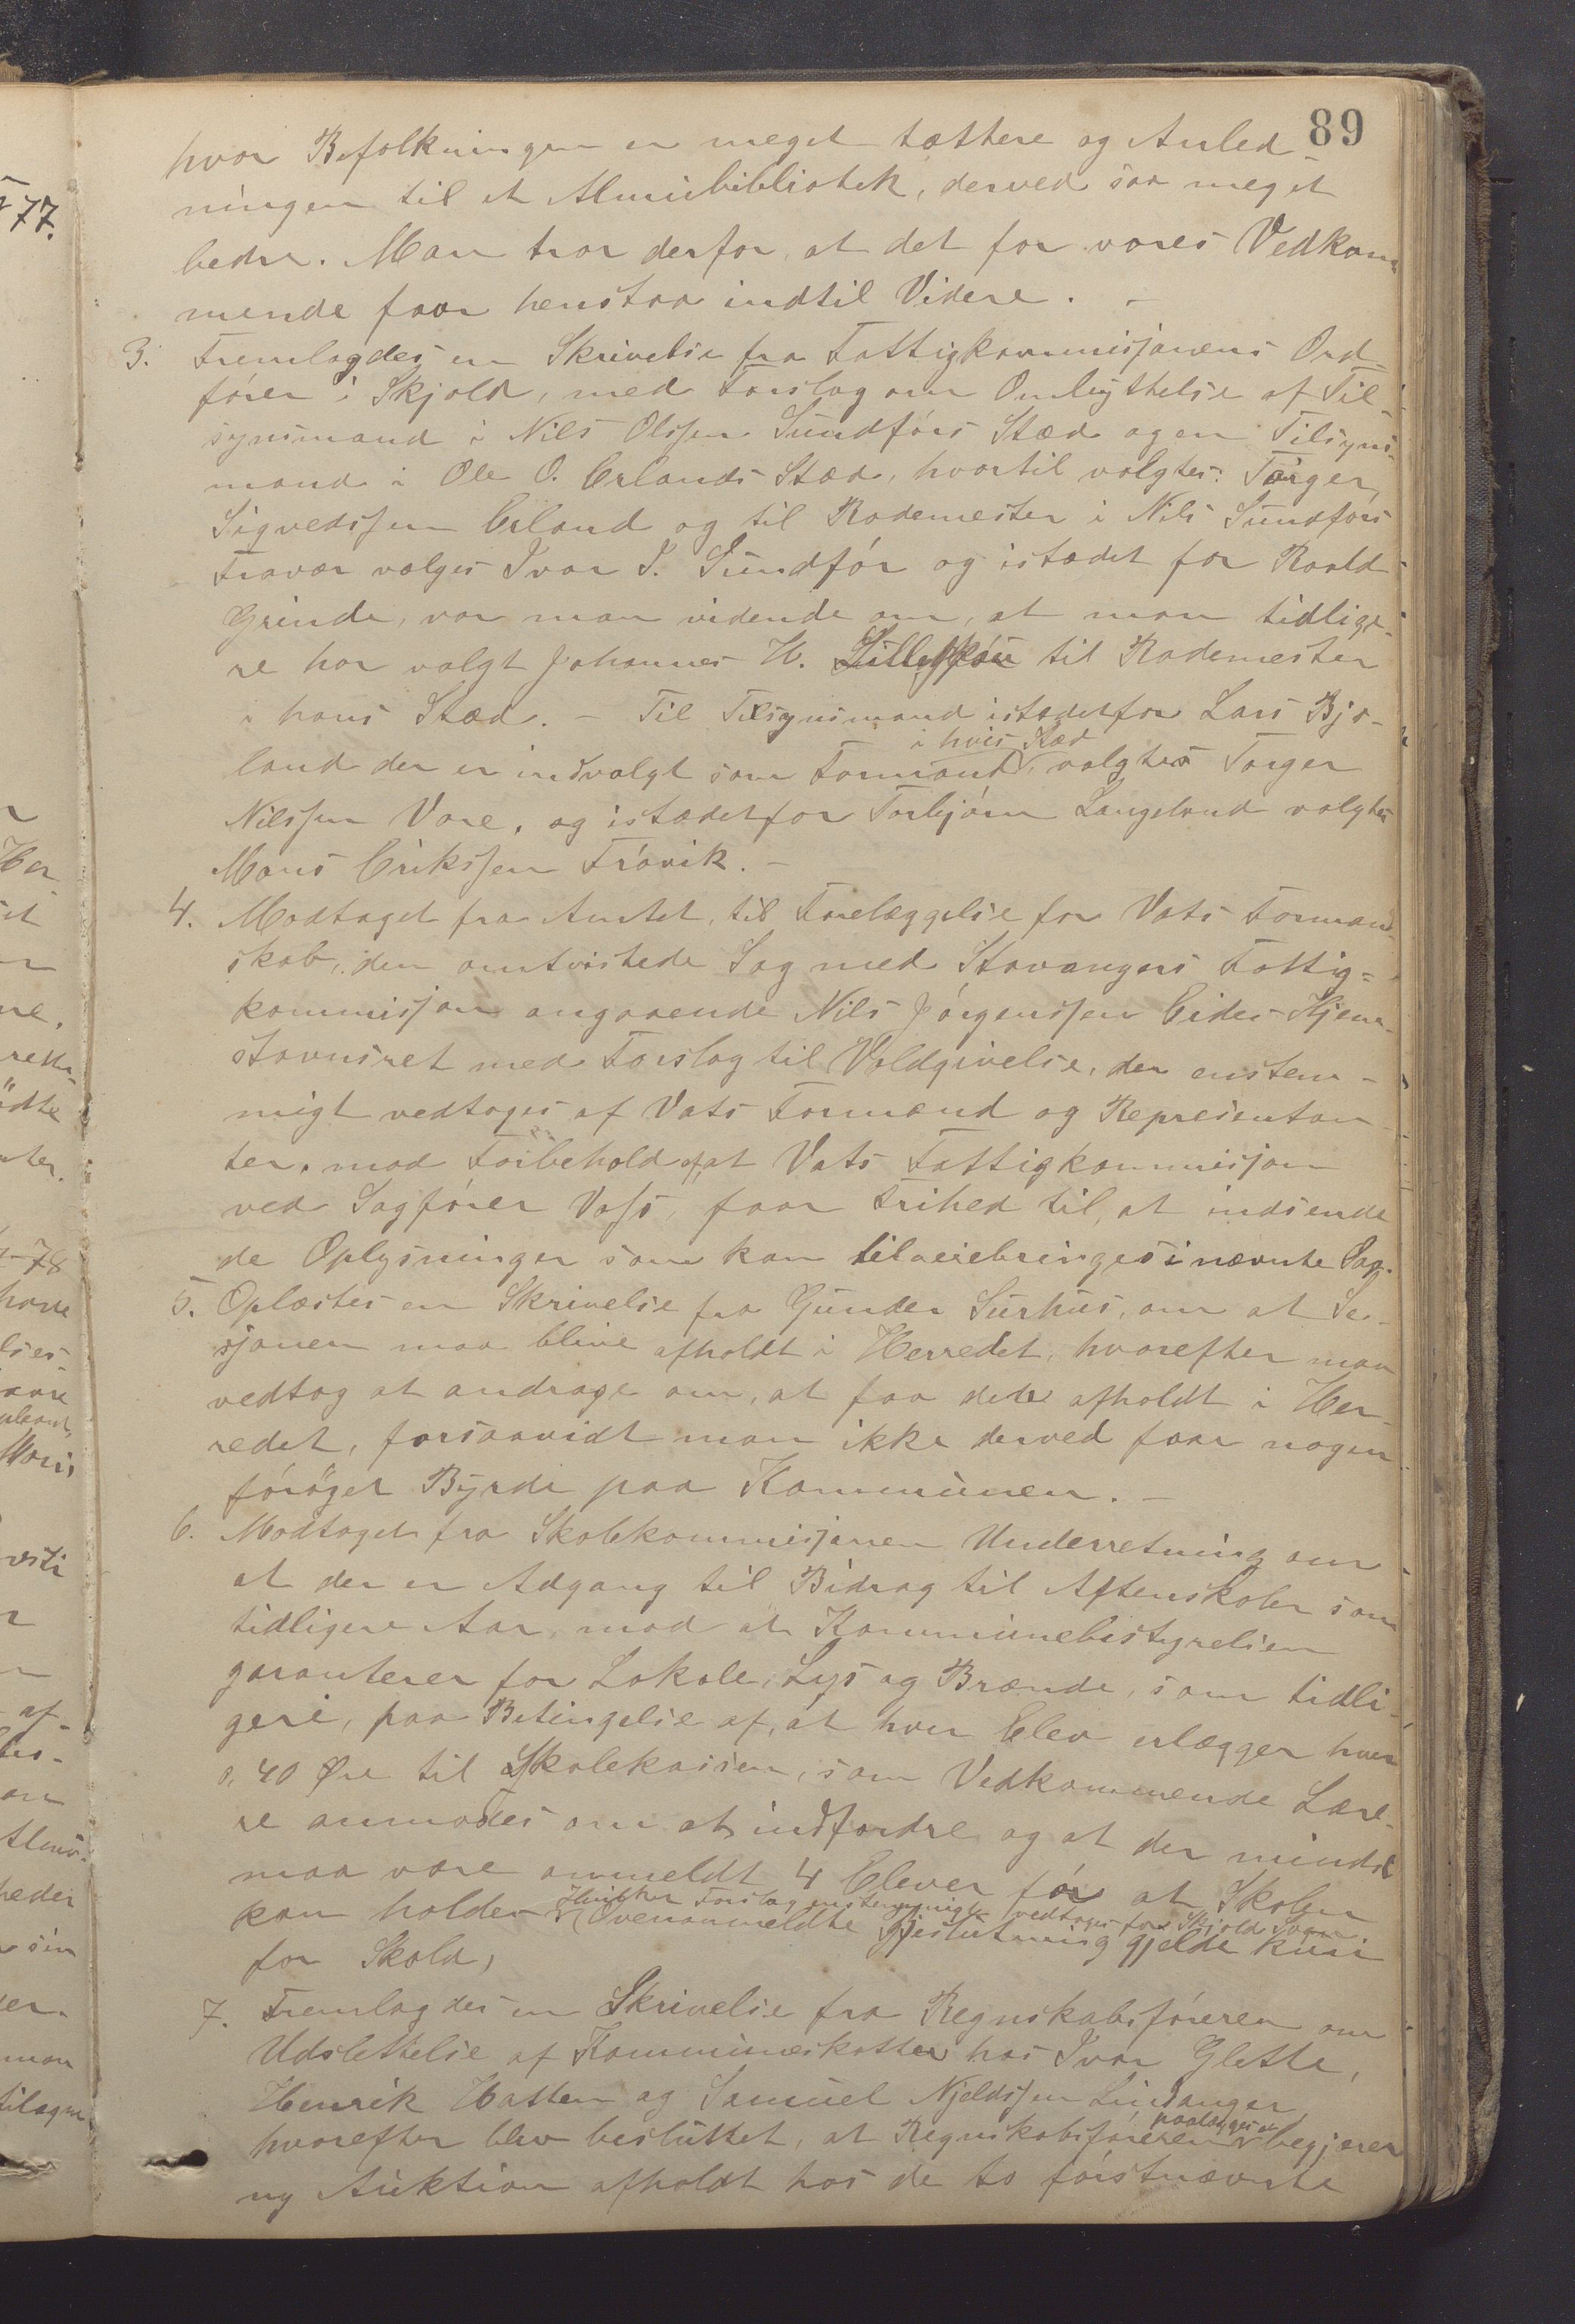 89
hvor Befolkningen er meget tættere og Anled-
ningen til et Almuebibliotek, derved saa meget
bedre. Man tror derfor, at det for vores Vedkom
mende faar henstaa indtil Videre. -
3. Fremlagdes en Skrivelse fra Fattigkommisjonens Ord-
fører i Skjold, med Forslag om Ombyttelse af Til-
synsmand i Nils Olssen Sundførs Stæd og en Tilsyns-
mand i Ole O. Erlands Stæd, hvortil valgtes: Torger
Sigvedssen Erland og til Rodemester i Nils Sundførs
Fravær valges Ivar I. Sundfør og istædet for Roald
Grinde, var man vidende om, at man tidlige-
re har valgt Johannes H. til Rodemester
i hans Stæd. - Til Tilsynsmand istædetfor Lars Bjo-
i hvis Stæd
land der er indvalgt som Formand valgtes Torger
Nilssen Vare, og istædetfor Torbjørn Langeland valgtes
Mons Erikssen Frøvik. -
4. Modtaget fra Amtet, til Forelæggelse for Vats Formand-
skab, den omtvistede Sag med Stavangers Fattig-
kommisjon angaaende Nils Jørgenssen Eides Hjem-
stavnsret med Forslag til Voldgivelse, der enstem-
migt vedtages af Vats Formænd og Representan-
ter, mod Forbehold af, at Vats Fattigkommisjon
ved Sagfører Voss, faar Frihed til, at indsende
de Oplysninger som kan tilveiebringes i nævnte Sag.
5. Oplæstes en Skrivelse fra Gunder Surhus, om at Se-
sjonen maa blive afholdt i Herredet, hvorefter man
vedtog at andrage om, at faa dette afholdt i Her-
redet, forsaavidt man ikke derved faar nogen
forøget Byrde paa Kommunen. -
6. Modtaget fra Skolekommisjonen Underretning om
at der er Adgang til Bidrag til Aftenskoler som
tidligere Aar, mod at Kommunebestyrelsen
garanterer for Lokale, Lys og Brænde, som tidli-
gere, paa Betingelse af, at hver Elev erlægger hver
0,40 Øre til Skolekassen, som Vedkommende Lære-
re anmodes om at indfordre og at der mindst
maa være anmeldt 4 Elever før at Skolen
Hvilket Forslag enstemmigt vedtages for Skjold Sogn
kan holdes Ovenanmeldte Beslutning gjelde kun
for Skold,
7. Fremlagdes en Skrivelse fra Regnskabsføreren om
Udslettelse af Kommuneskatter hos Ivar Glette,
Henrik Hatten og Samuel Njeldssen Lindanger
paalægges at
hvorefter blev besluttet, at Regnskabsføreren begjærer
ny Auktion afholdt hos de to førstnævnte